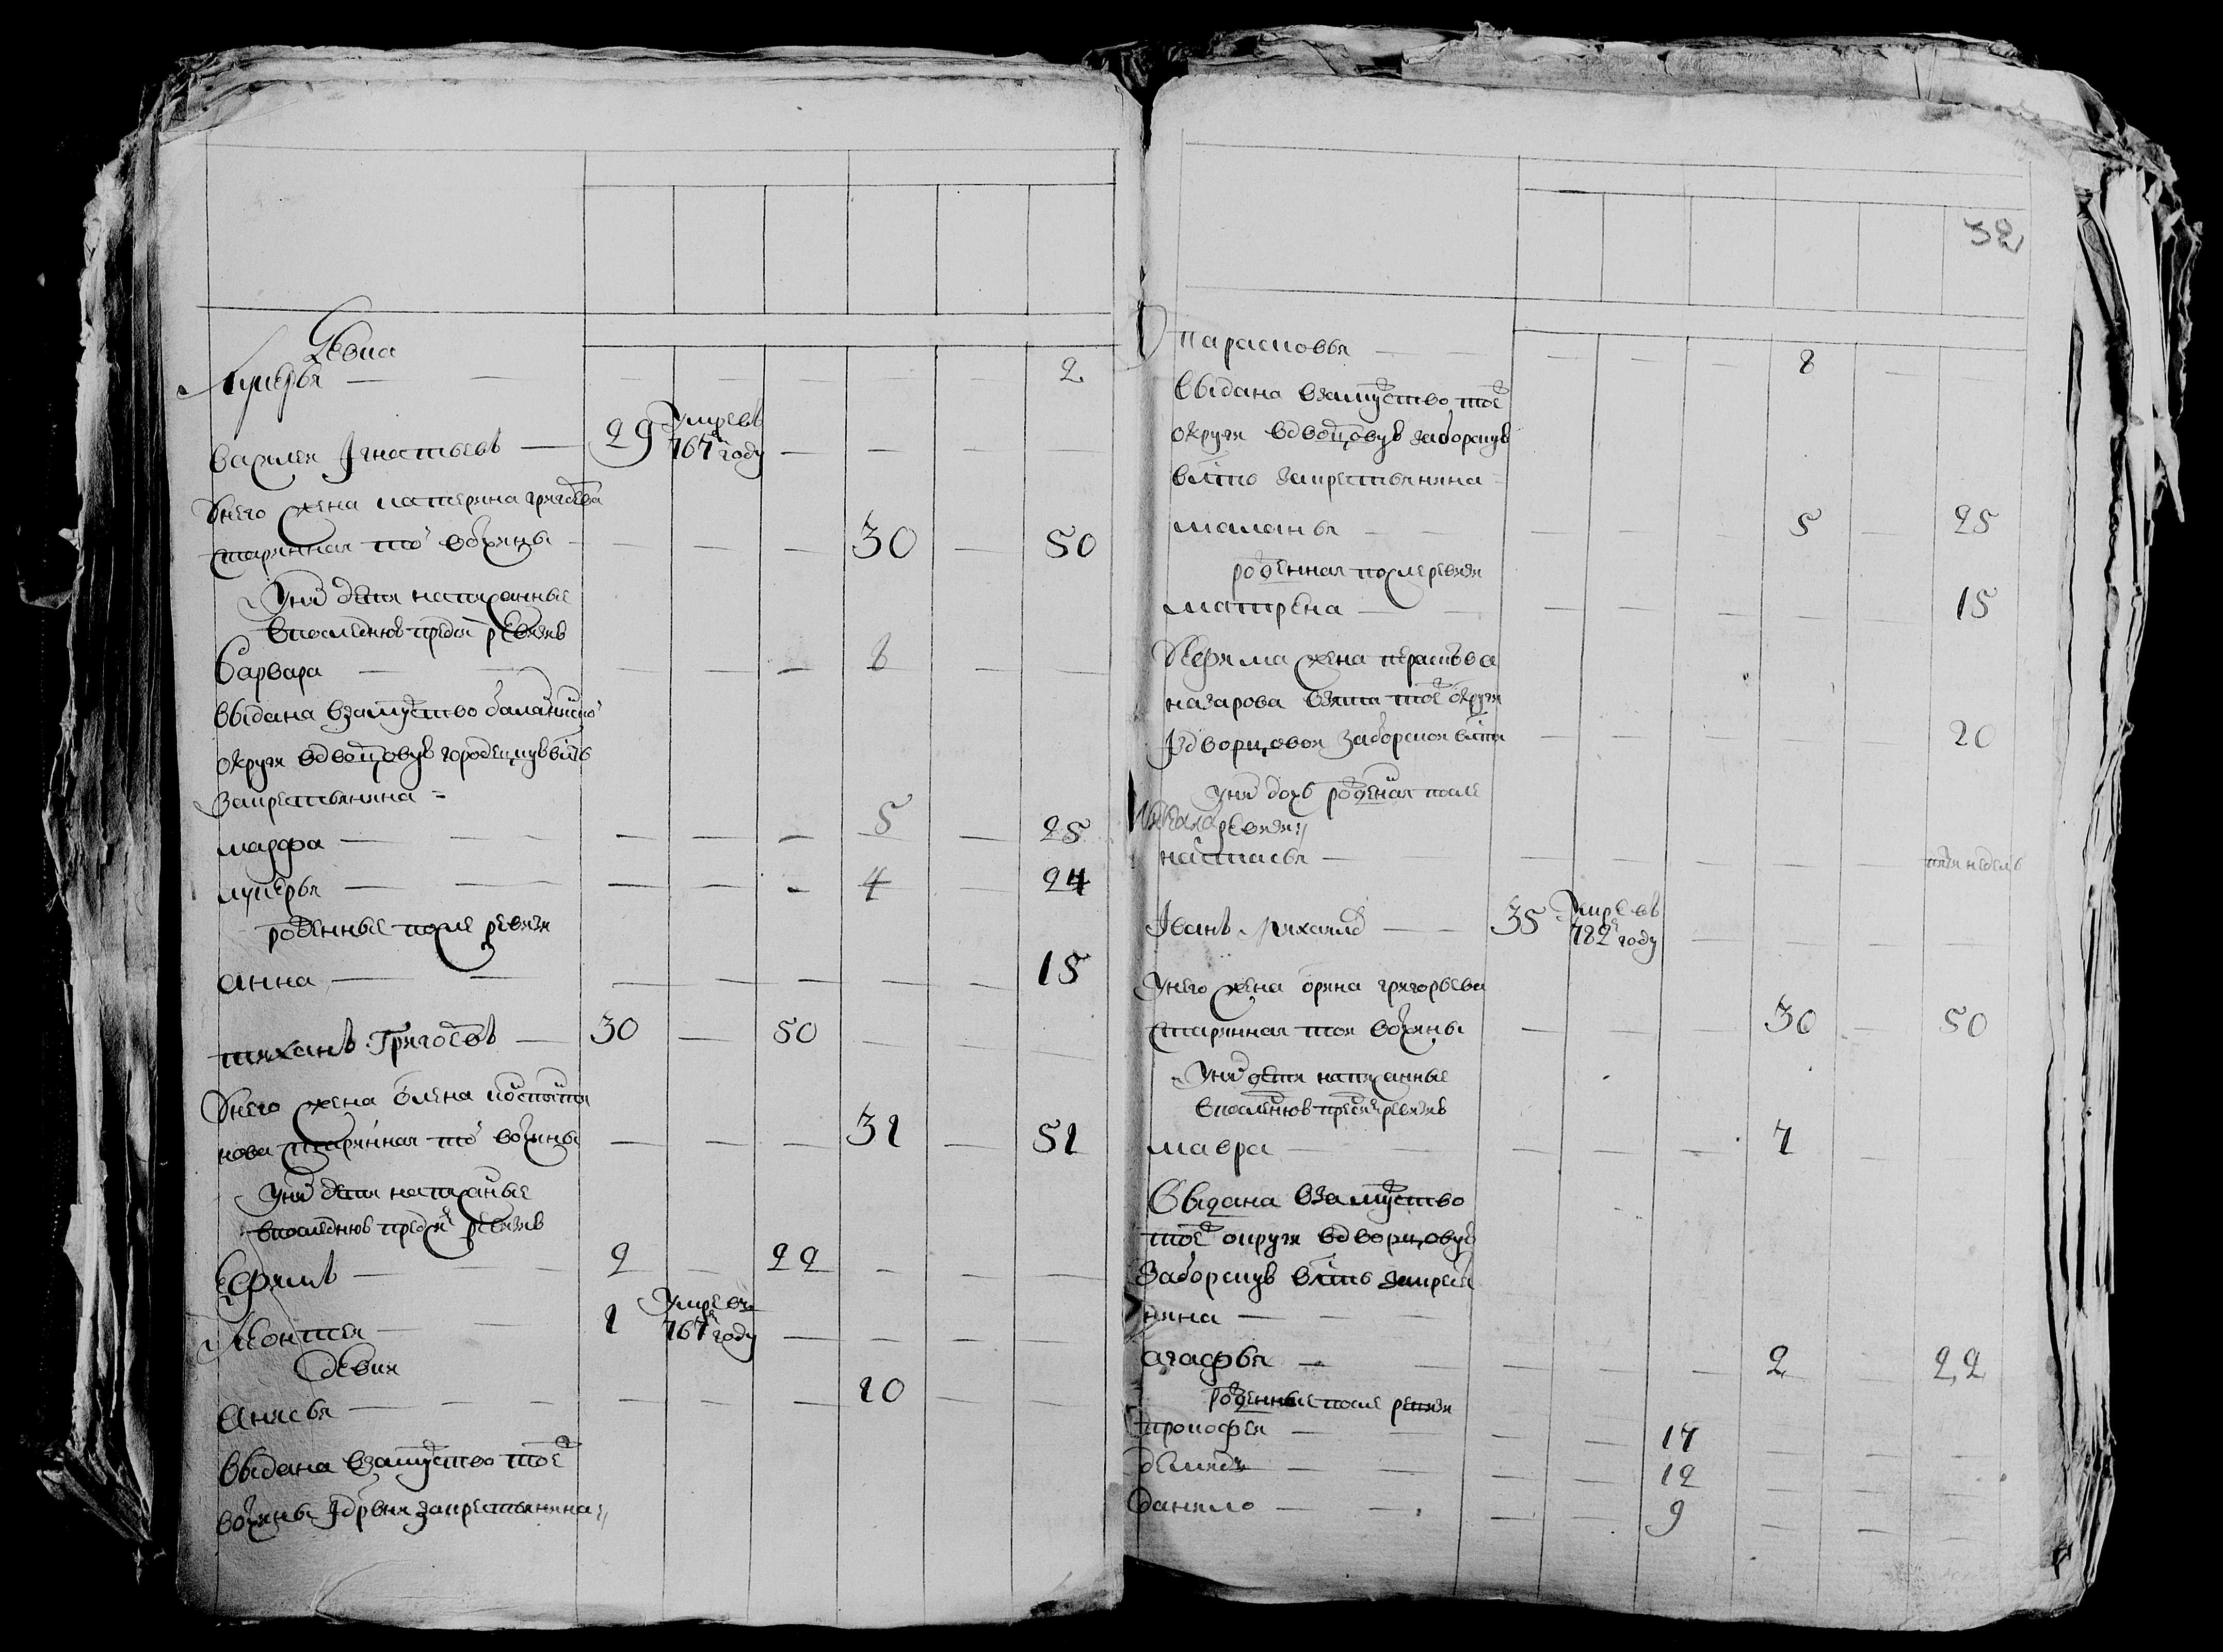 девка
лукерья — — — — — — — 2
василей Игнатьевъ — 29 умре въ 767м году — — — —
Унего жена катерина григорева
старинная той вотчины — — — 30 — 50
Унихъ дети написанные
впоследнюю пред сей ревизию
варвара — — — — — 8 — —
выдана взамужство балахнинской
округи вдворцовую городецкую волость
закрестьянина =
марфа — — — — — 5 — 25
лукерья — — — — — 4 — 24
рожденные после ревизи
анна — — — — — — — 15
тиханъ Григоревъ — 30 — 50 — — —
Унего жена олена костянти
нова старинная той вотчины — — — 31 — 51
Унихъ дети написаные
впоследнюю пред сей ревизию
Ефимъ — — 2 — 22 — — —
леонтей — — 1 умре въ 767м году — — — —
девки
анисья — — — — — 10 — —
выдана взамужство тоеж
вотчины Здрвни закрестьянина
32
парасковья — — — — — 8 — —
выдана взамужство тоеж
округи вдворцовую заборскую
волость закрестьянина =
маланья — — — — — 5 — 25
рожденная после ревизи
матрена — — — — — — — 15
Уефима жена
назарова взята тоеж округи
Здворцовой заборской волости — — — — — 20
Унихъ дочь рожденая после
ревизи
настасья — — — — — — — недель
Иванъ Михаилов — 35 умре въ 782м году — — — —
Унего жена орина григорьева
старинная тоя вотчины — — — 30 — 50
Унихъ дети написанные
впоследнюю пред сей ревизию
мавра — — — — — 7 — —
выдана взамужство
тоеж округи вдворцовую
Заборскую волость закрестья
нина — —
агафья — — — — — 2 — 22
рожденные после ревизи
прокофей — — — — 17 — — —
демидъ — — — — 12 — — —
данило — — — — 9 — — —